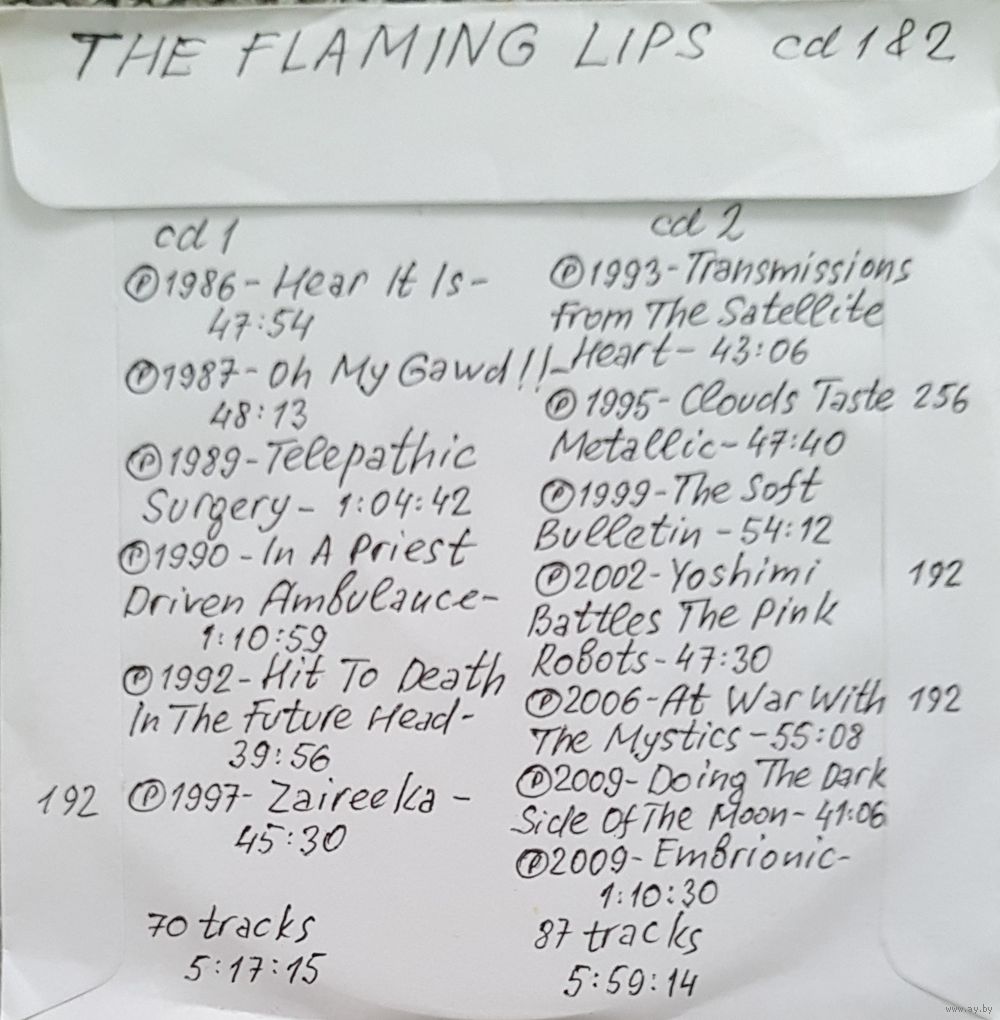 THE FLAMING LIPS cd 1 & 2
cd 1
℗1986-Hear It Is-
47:54
℗1987-Oh My Gawd!!-
48:13
℗1989-Telepathic
Surgery- 1:04:42
℗1990-In A Priest
Driven Ambulauce-
1:10:59
℗1992-Hit To Death
In The Future Head-
39:56
192 ℗1997-Zaireeka-
45:30
70 tracks
5:17:15
cd 2
℗1993-Transmissions
from The Satellite
Heart- 43:06
℗1995-Clouds Taste 256
Metallic-47:40
℗1999-The Soft
Bulletin-54:12
℗2002-Yoshimi 192
Battles The Pink
Robots-47:30
℗2006-At War With 192
The Mystics-55:08
℗2009-Doing The Dark
Side Of The Moon-41:06
℗2009-Embrionic-
1:10:30
87 tracks
5:59:14
www.ay.by